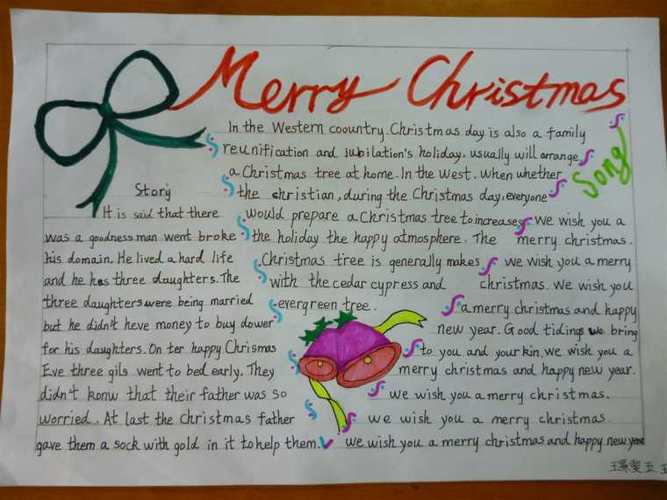 Merry Christmas
In the Western coountry. Christmas day is also a family
reunification and jubilation's holiday. usually will arrange
a Christmas tree at home. In the West. When whether
the christian, during the Christmas day, everyone
would prepare a Christmas tree to increases
the holiday the happy atmosphere. The
Christmas tree is generally makes
with the cedar cypress and
evergreen tree.
Story
It is said that there
was a goodness man went broke
his domain. He lived a hard life
and he has three daughters. The
three daughters were being married
but he didn't heve money to buy dower
for his daughters. On ter happy Chrismas
Eve three gils went to bed early. They
didn't konw that their father was so
worried. At last the Christmas father
gave them a sock with gold in it to help them.
Song
We wish you a
merry christmas.
we wish you a merry
christmas. We wish you
a merry christmas and happy
new year. Good tidings we bring
to you and your kin. we wish you a
merry christmas and happy new year.
we wish you a merry christmas.
we wish you a merry christmas.
we wish you a merry christmas and happy new year